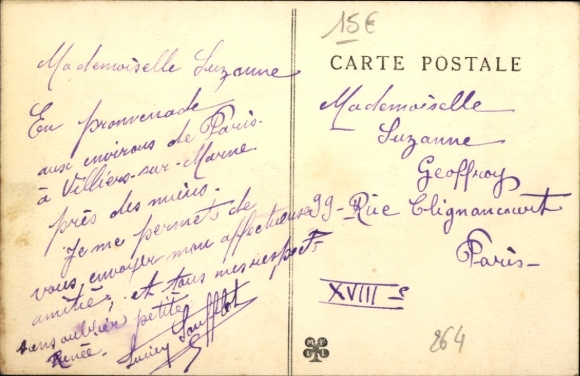 15€
CARTE POSTALE
Mademoiselle Suzanne
En promenade
aux environs de Paris.
à Villiers-sur-Marne
près des miens.
Je me permets de
vous envoyer mon affectueuse
amitié, et tous mes respects
sans oublier petite
Renée. Lucien Soufflot
Mademoiselle
Suzanne
Geoffroy
99 - Rue Clignancourt
Paris -
XVIII-e
264